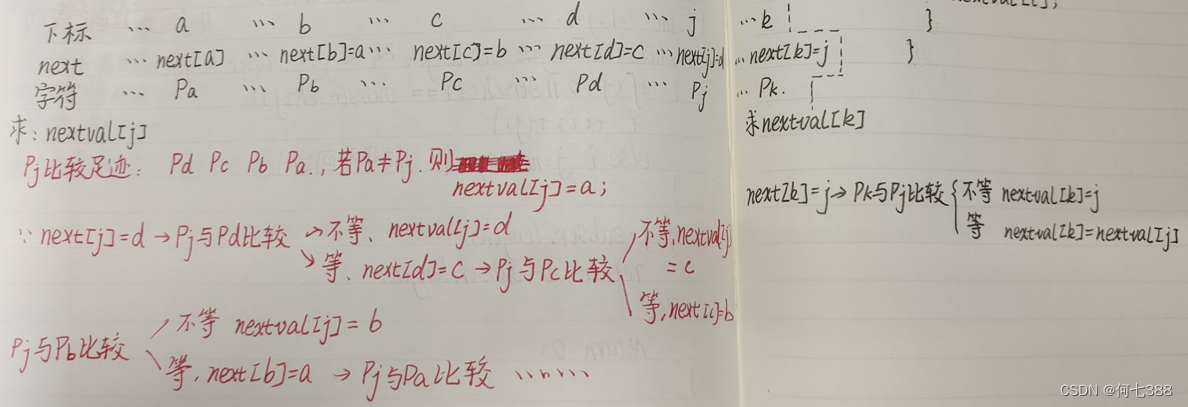 下标 … a … b … c … d … j …k }
next … next[a] … next[b]=a… next[c]=b … next[d]=c …next[j]=d …next[k]=j }
字符 … Pa … Pb … Pc … Pd … Pj … Pk.
求: nextval[j]
求nextval[k]
Pj比较足迹: Pd Pc Pb Pa., 若Pa≠Pj. 则
nextval[j]=a;
∵ next[j]=d → Pj与Pd比较 → 不等、nextval[j]=d
↘ 等、next[d]=c → Pj与Pc比较
不等,nextval[j]
=c
等,next[c]=b
Pj与Pb比较
不等 nextval[j]=b
等, next[b]=a → Pj与Pa比较 ……
next[k]=j→Pk与Pj比较{
不等 nextval[k]=j
等 nextval[k]=nextval[j]
CSDN @何七388